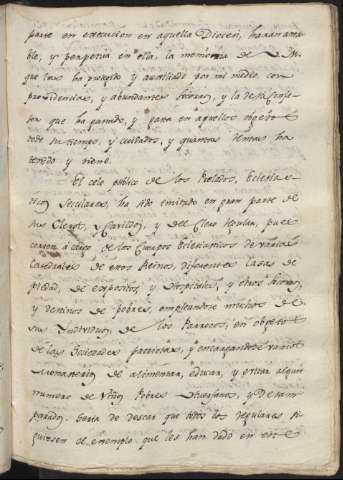 parte en execucion en aquella Dioceri, haran ama-
ble, y perpetua en ella, la memoria de
que las ha protegido y auxiliado por mi medio, con
providencias, y abundantes
que ha ganado, y gana en aquellos objetos
todo su tiempo, y cuidados, y quantas rentas ha
tenido y tiene.
El celo publico de los Prelados, Eclesias-
ticos Seculares, ha sido imitado en gran parte de
sus Cleros, y Cavildos, y del Clero Regular, pues
corren á cargo de los Cuerpos Eclesiasticos de varias
Catedrales de estos Reinos, diferentes Casas de
piedad, de expositos, y Hospitales, y otros
y destinos de pobres, empleandose muchos de
sus Individuos, de los Parrocos, en objetos
de las Sociedades patrioticas, y encargandose varios
Monasterios de alimentar, educar, y criar algun
numero de Niños Pobres Huerfanos, y Desam-
parados. Seria de desear que todos los regulares si-
guiesen el exemplo que les han dado en este